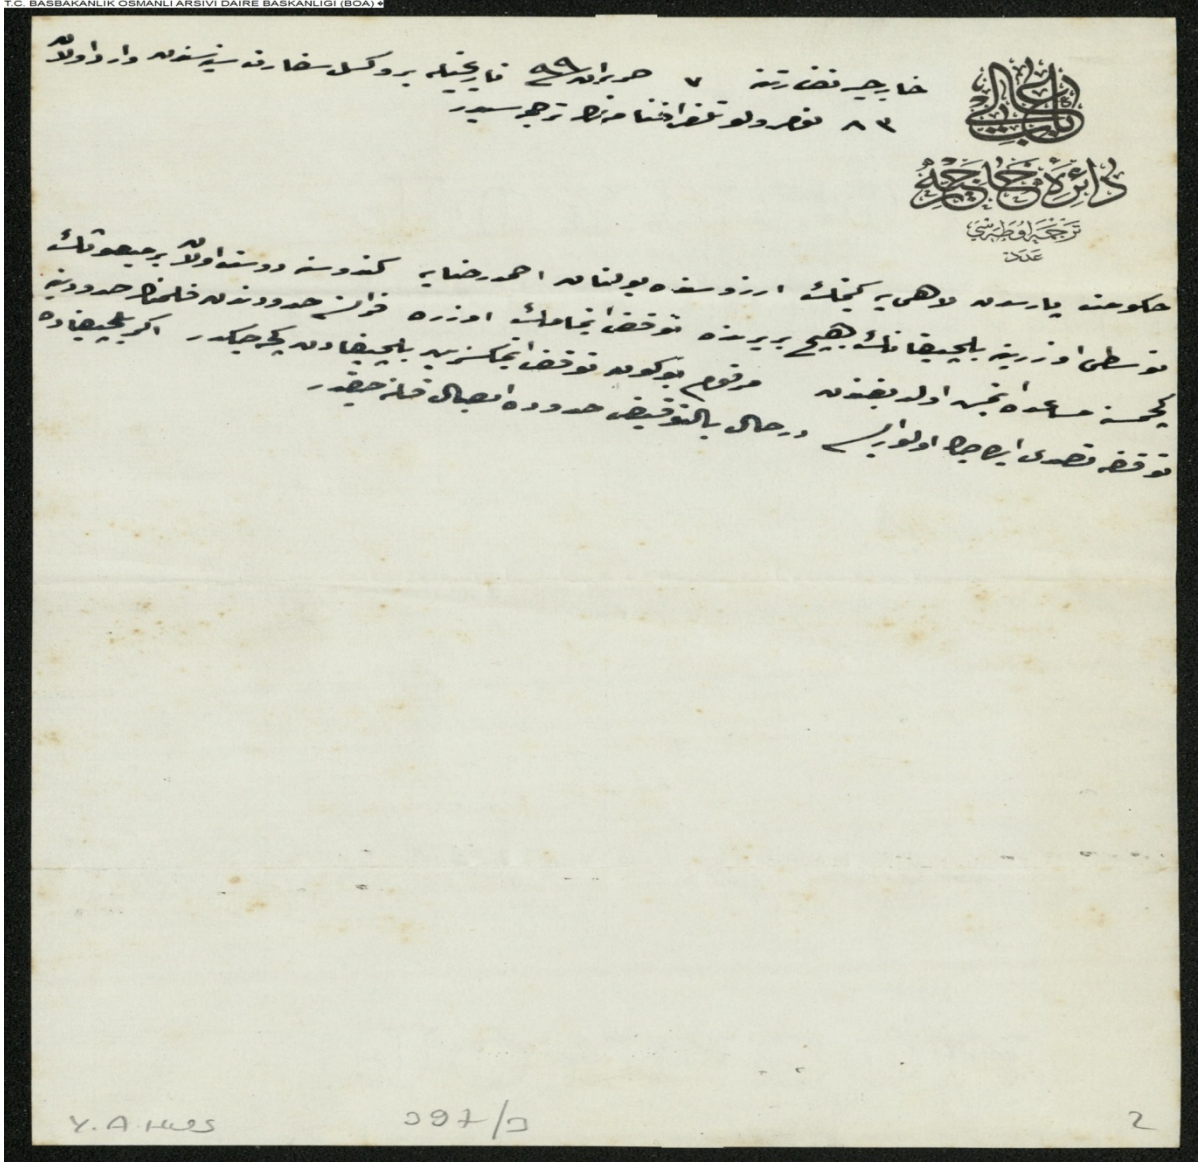 T.C. BASBAKANLIK OSMANLI ARSIVI DAIRE BASKANLIGI (BOA)
باب عالی
دائرهٔ خارجیه
ترجمه اوطه‌سی
عدد
خارجیه نظارتنه ٧ حزیران ٩٩ تاریخیله بروکسل سفارت سنیه‌سندن وارد اولان
٨٣ نومرولو تلغرافنامه‌نك ترجمه‌سیدر
حکومت پارسدن لاهی یه کچمك ارزوسنده بولنان احمد رضایه کندوسنه دوست اولان بر مبعوثك
توسطی اوزرینه بلچیقانك هیچ بر یرنده توقف ایتمامك اوزره فرانسه حدودندن فلمنك حدودینه
کچمسنه مساعده ایتمش اولدیغندن مرقوم بوکون توقف ایتمکسزین بلچیقادن کچه‌جکدر اکر بلچیقاده
توقفه تصدی ایده‌جك اولور ایسه درحال بالتوقیف حدوده ایصال قلنه‌جقدر
Y.A.HUS
397/3
2